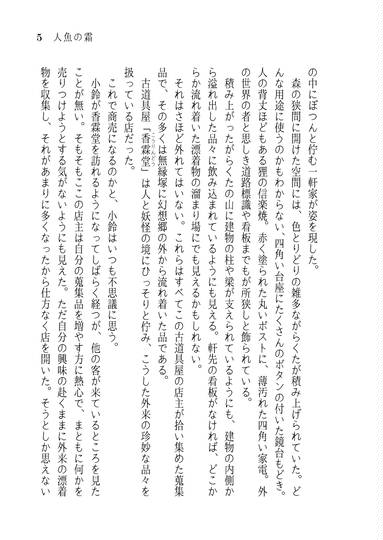 5　人魚の霜
の中にぽつんと佇む一軒家が姿を現した。
　森の狭間に開けた空間には、色とりどりの雑多ながらくたが積み上げられていた。ど
んな用途に使うのかもわからない、四角い台座にたくさんのボタンの付いた鏡台もどき。
人の背丈ほどもある狸の信楽焼。赤く塗られた丸いポストに、薄汚れた四角い家電。外
の世界の者と思しき道路標識や看板までもが所狭しと飾られている。
　積み上がったがらくたの山に建物の柱や梁が支えられているようにも、建物の内側か
ら溢れ出した品々に飲み込まれているようにも見える。軒先の看板がなければ、どこか
から流れ着いた漂着物の溜まり場にでも見えるかもしれない。
　それはさほど外れてはいない。これらはすべてこの古道具屋の店主が拾い集めた蒐集
品で、その多くは無縁塚に幻想郷の外から流れ着いた品である。
　古道具屋「香霖堂」は人と妖怪の境にひっそりと佇み、こうした外来の珍妙な品々を
扱っている店だった。
　これで商売になるのかと、小鈴はいつも不思議に思う。
　小鈴が香霖堂を訪れるようになってしばらく経つが、他の客が来ているところを見た
ことが無い。そもそもここの店主は自分の蒐集品を増やす方に熱心で、まともに何かを
売りつけようとする気がないようにも見えた。ただ自分の興味の赴くままに外来の漂着
物を収集し、それがあまりに多くなったから仕方なく店を開いた。そうとしか思えない